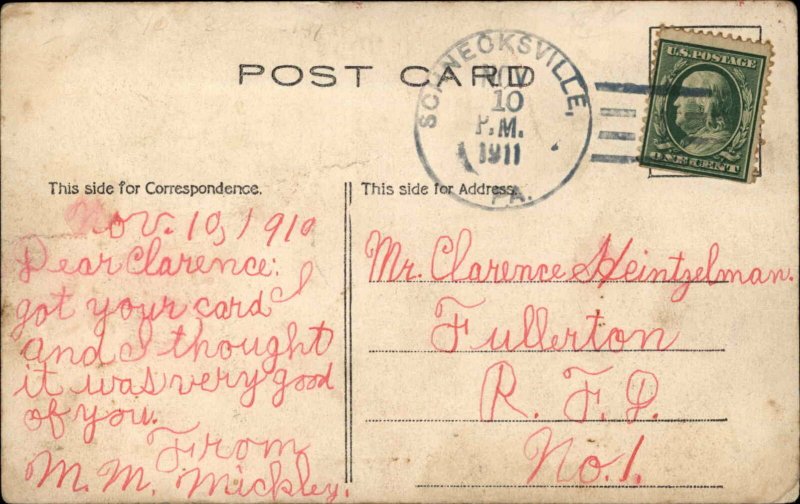 POST CARD
SCHNECKSVILLE,
NOV
10
P.M.
1911
PA.
U.S. POSTAGE
ONE CENT
This side for Correspondence.
Nov. 10, 1910
Dear Clarence: I
got your card
and I thought
it was very good
of you.
From
M. M. Mickley.
This side for Address.
Mr. Clarence Heintzelman.
Fullerton
R. F. D.
No. 1.